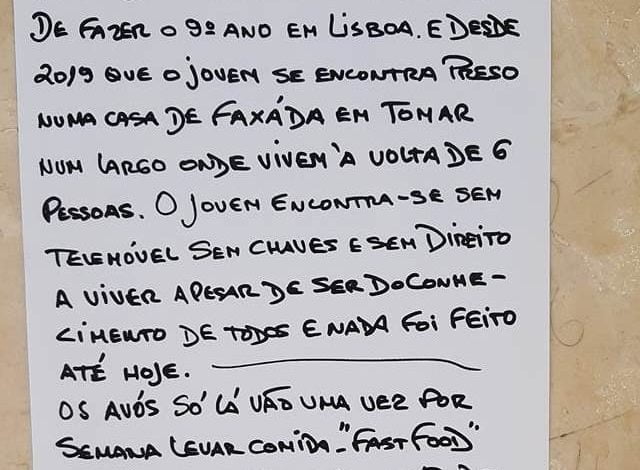 DE FAZER O 9º ANO EM LISBOA. E DESDE
2019 QUE O JOVEM SE ENCONTRA PRESO
NUMA CASA DE FAXÁDA EM TOMAR
NUM LARGO ONDE VIVEM À VOLTA DE 6
PESSOAS. O JOVEM ENCONTRA-SE SEM
TELEMÓVEL SEM CHAVES E SEM DIREITO
A VIVER APESAR DE SER DO CONHE-
CIMENTO DE TODOS E NADA FOI FEITO
ATÉ HOJE.
OS AVÓS SÓ LÁ VÃO UMA VEZ POR
SEMANA LEVAR COMIDA - "FAST FOOD"